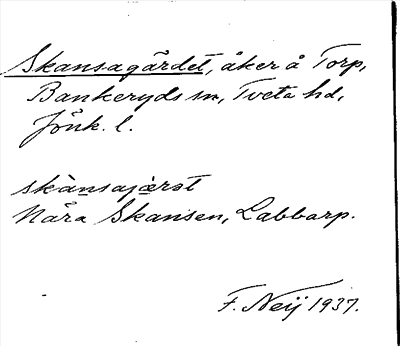 Skansagärdet, åker å Torp,
Bankeryds sn, Tveta hd,
Jönk. l.
skànsajæ̀rət
Nära Skansen, Labbarp.
F. Neij 1937.